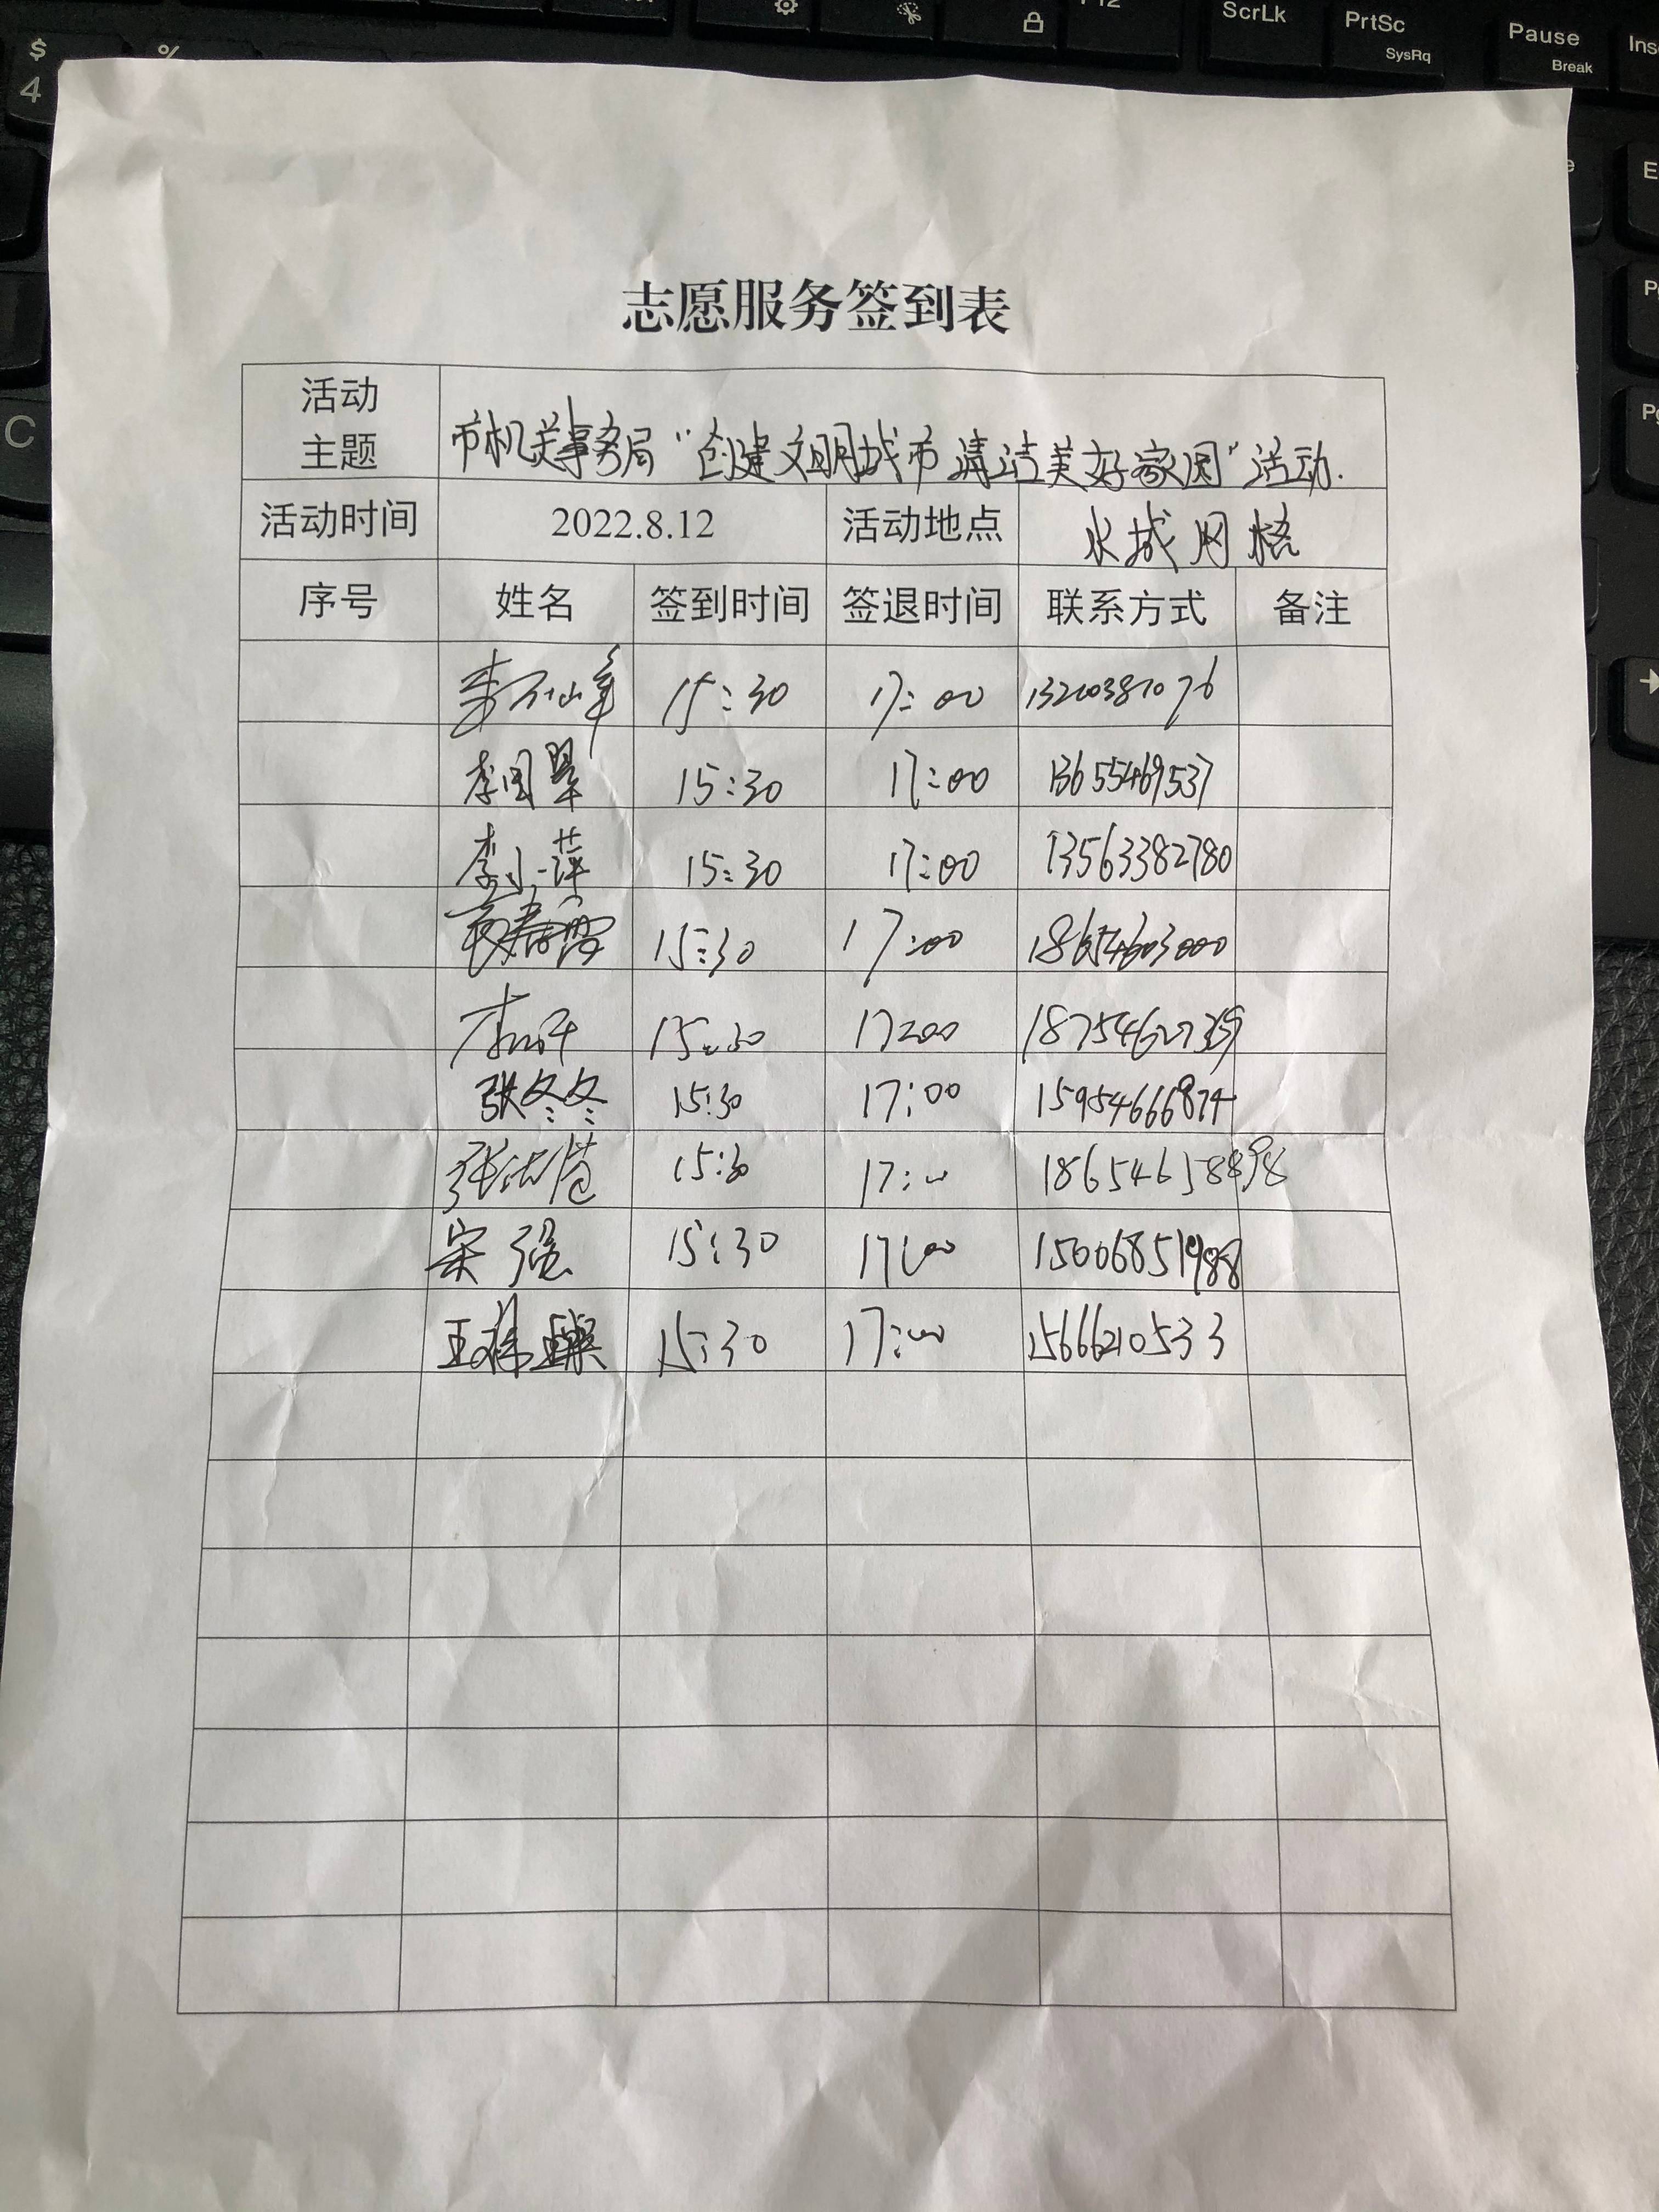 $
4
%
F12
ScrLk
PrtSc
SysRq
Pause
Break
Ins
C
志愿服务签到表
活动
主题
市机关事务局“创建文明城市 清洁美好家园”活动.
活动时间 2022.8.12 活动地点 水城网格
序号 姓名 签到时间 签退时间 联系方式 备注
15:30 17:00
李国翠 15:30 17:00 13655469537
李小萍 15:30 17:00 13563382780
15:30 17:00 18654603000
15:30 17:00
张冬冬 15:30 17:00 15954666874
15:30 17:00
宋强 15:30 17:00 15006851988
15:30 17:00 1566210533